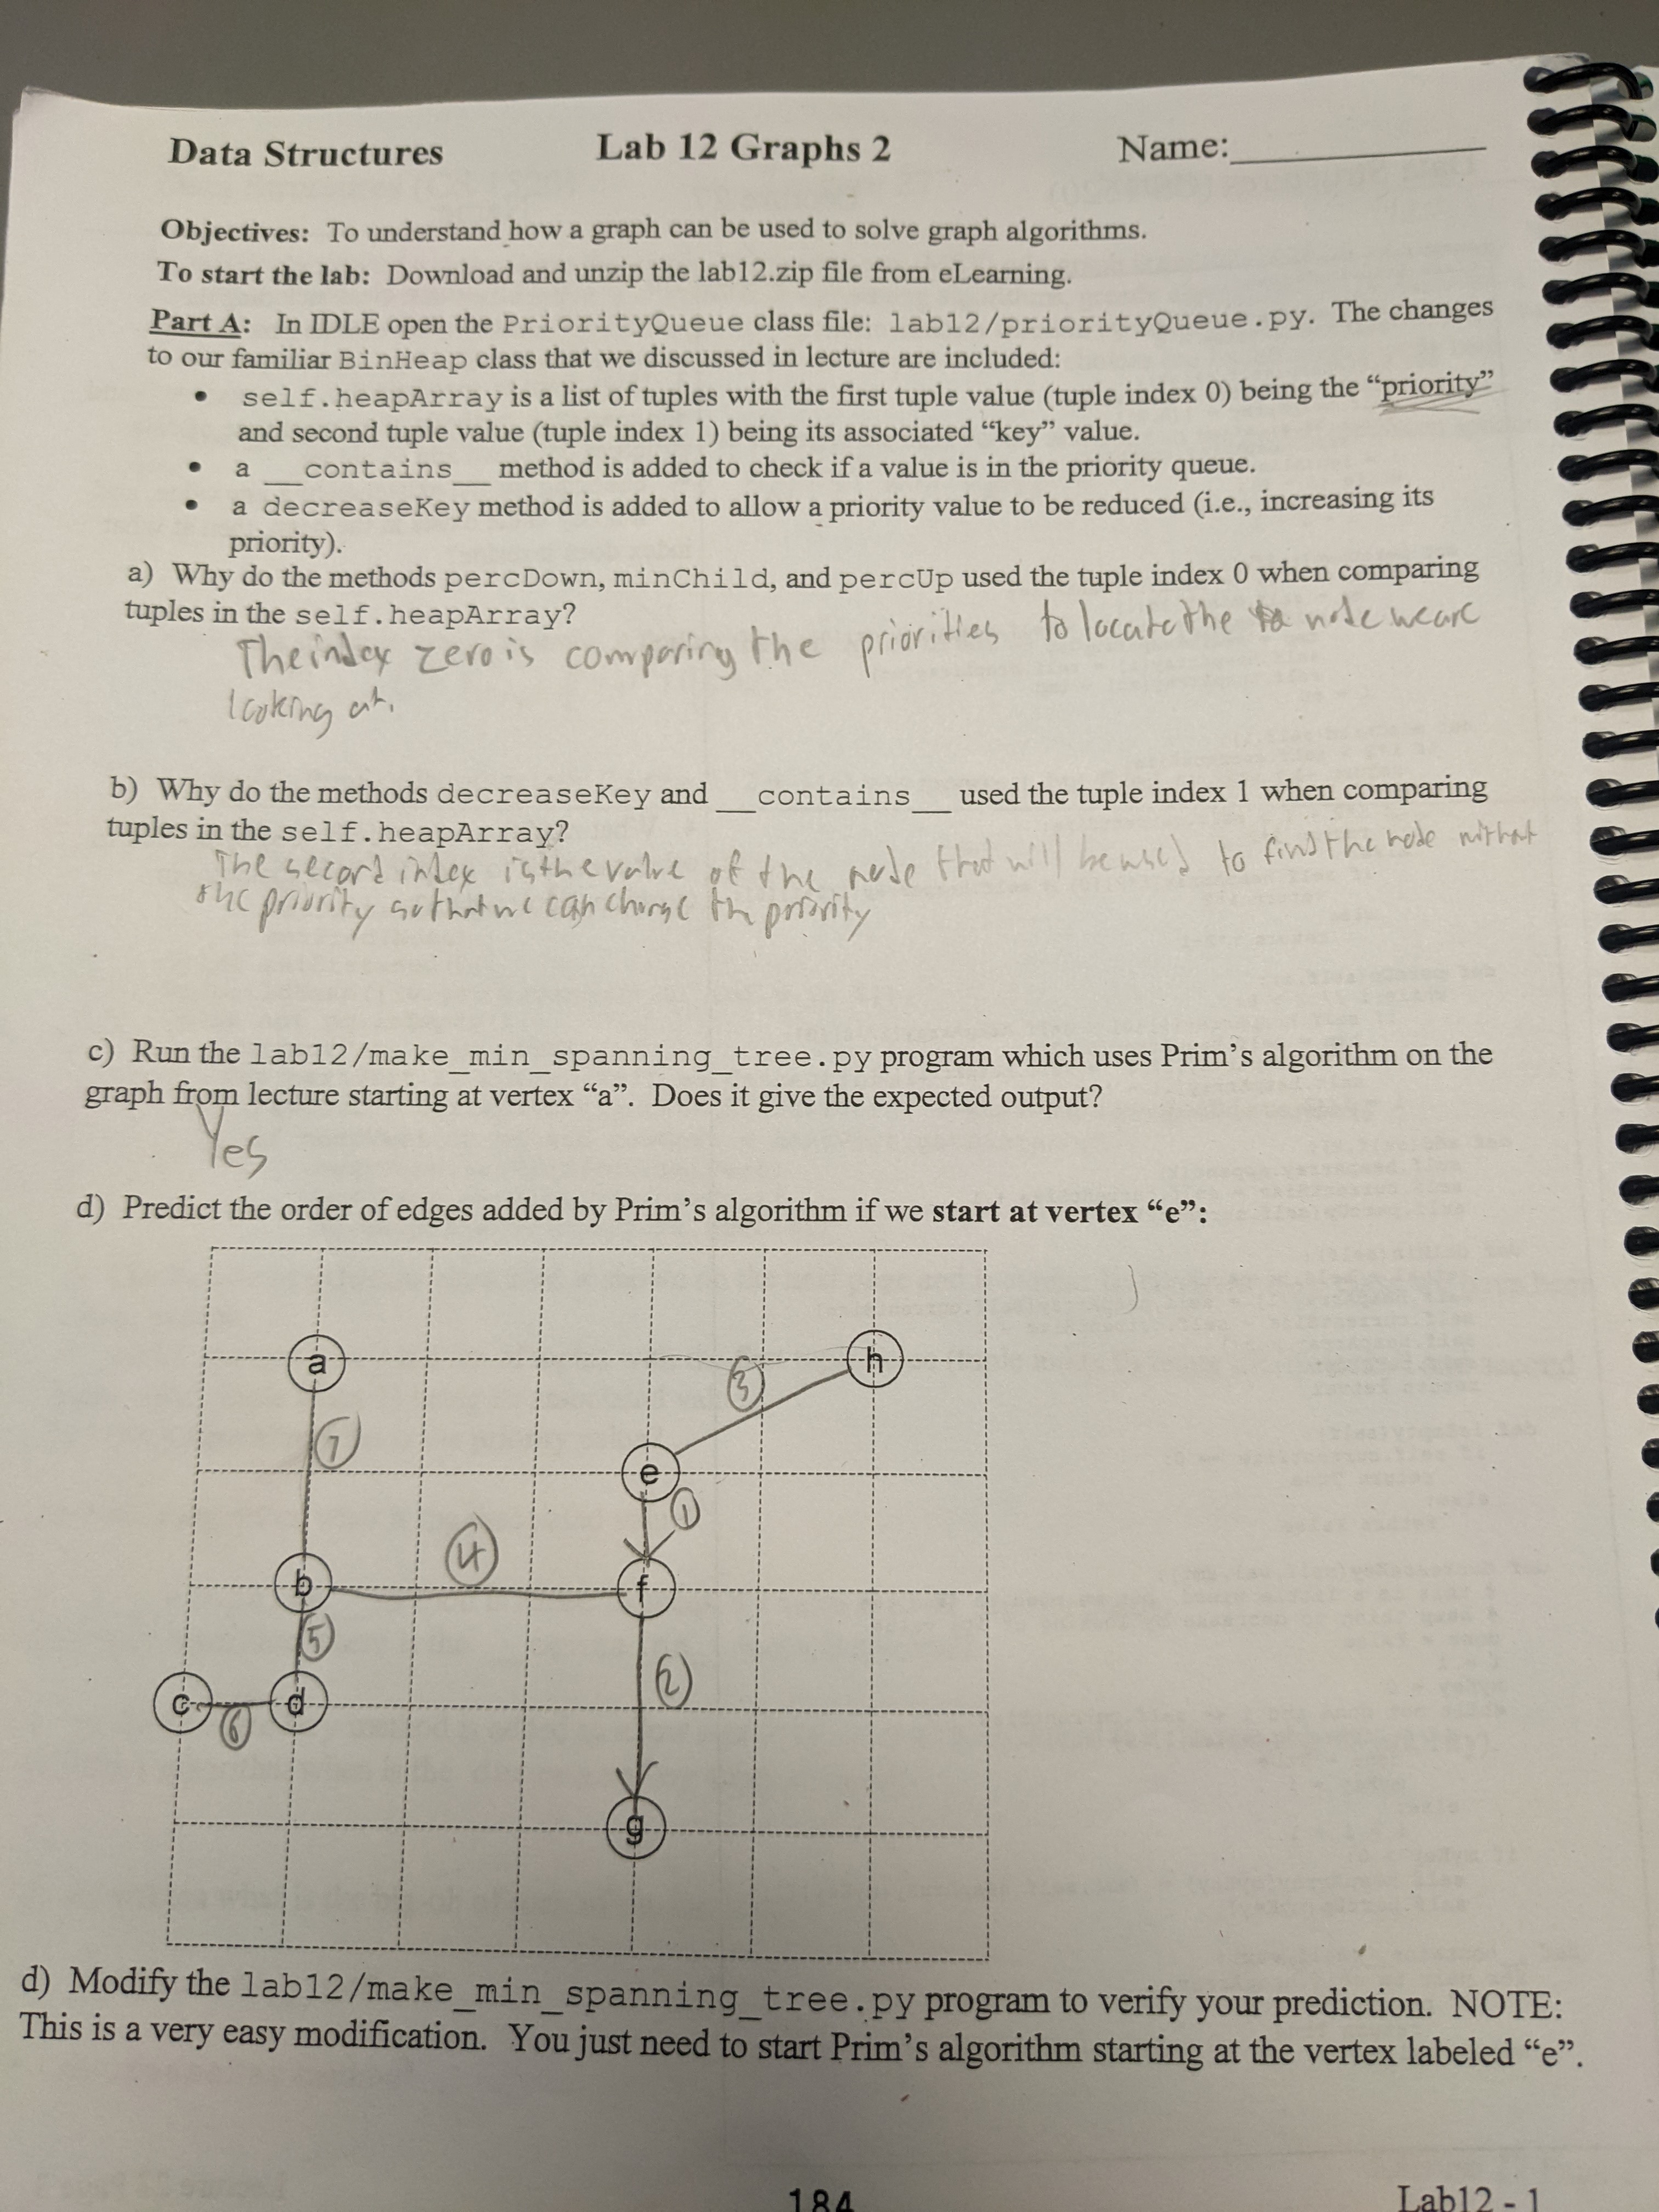 Data Structures Lab 12 Graphs 2 Name:____________
Objectives: To understand how a graph can be used to solve graph algorithms.
To start the lab: Download and unzip the lab12.zip file from eLearning.
Part A: In IDLE open the PriorityQueue class file: lab12/priorityQueue.py. The changes
to our familiar BinHeap class that we discussed in lecture are included:
• self.heapArray is a list of tuples with the first tuple value (tuple index 0) being the “priority”
and second tuple value (tuple index 1) being its associated “key” value.
• a __contains__ method is added to check if a value is in the priority queue.
• a decreaseKey method is added to allow a priority value to be reduced (i.e., increasing its
priority).
a) Why do the methods percDown, minChild, and percUp used the tuple index 0 when comparing
tuples in the self.heapArray?
The index zero is comparing the priorities to locate the node we are
looking at.
b) Why do the methods decreaseKey and __contains__ used the tuple index 1 when comparing
tuples in the self.heapArray?
The second index is the value of the node that will be used to find the node with that
the priority so that we can change the priority
c) Run the lab12/make_min_spanning_tree.py program which uses Prim’s algorithm on the
graph from lecture starting at vertex “a”. Does it give the expected output?
Yes
d) Predict the order of edges added by Prim’s algorithm if we start at vertex “e”:
a
3
h
7
e
1
4
b
f
5
2
c
d
6
g
d) Modify the lab12/make_min_spanning_tree.py program to verify your prediction. NOTE:
This is a very easy modification. You just need to start Prim’s algorithm starting at the vertex labeled “e”.
184
Lab12 - 1